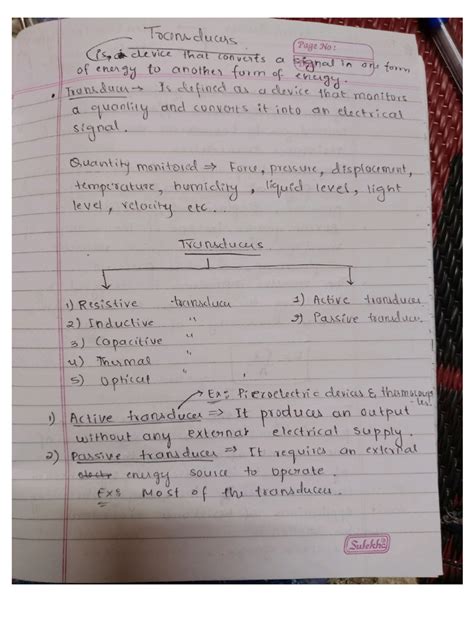 Transducers
Page No:
(is a device that converts a signal in one form
of energy to another form of energy.
• Transducer → Is defined as a device that monitors
a quantity and converts it into an electrical
signal.
Quantity monitored ⇒ Force, pressure, displacement,
temperature, humidity, liquid level, light
level, velocity etc...
Transducers
1) Resistive transducer 1) Active transducer
2) Inductive " 2) Passive transducer
3) Capacitive "
4) Thermal "
5) Optical "
Ex: Piezoelectric devices & thermocouples.
1) Active transducer ⇒ It produces an output
without any external electrical supply.
2) Passive transducer ⇒ It requires an external
energy source to operate.
Exs Most of the transducer.
Sulekha